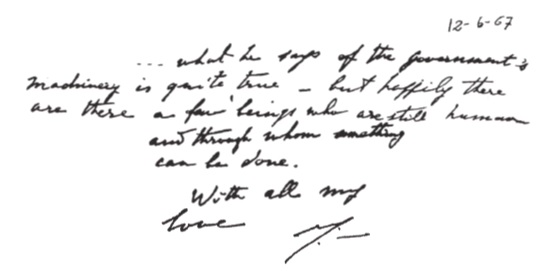 12-6-67
... what he says of the government's
machinery is quite true – but happily there
are there a few beings who are still human
and through whom something
can be done.
With all my
love